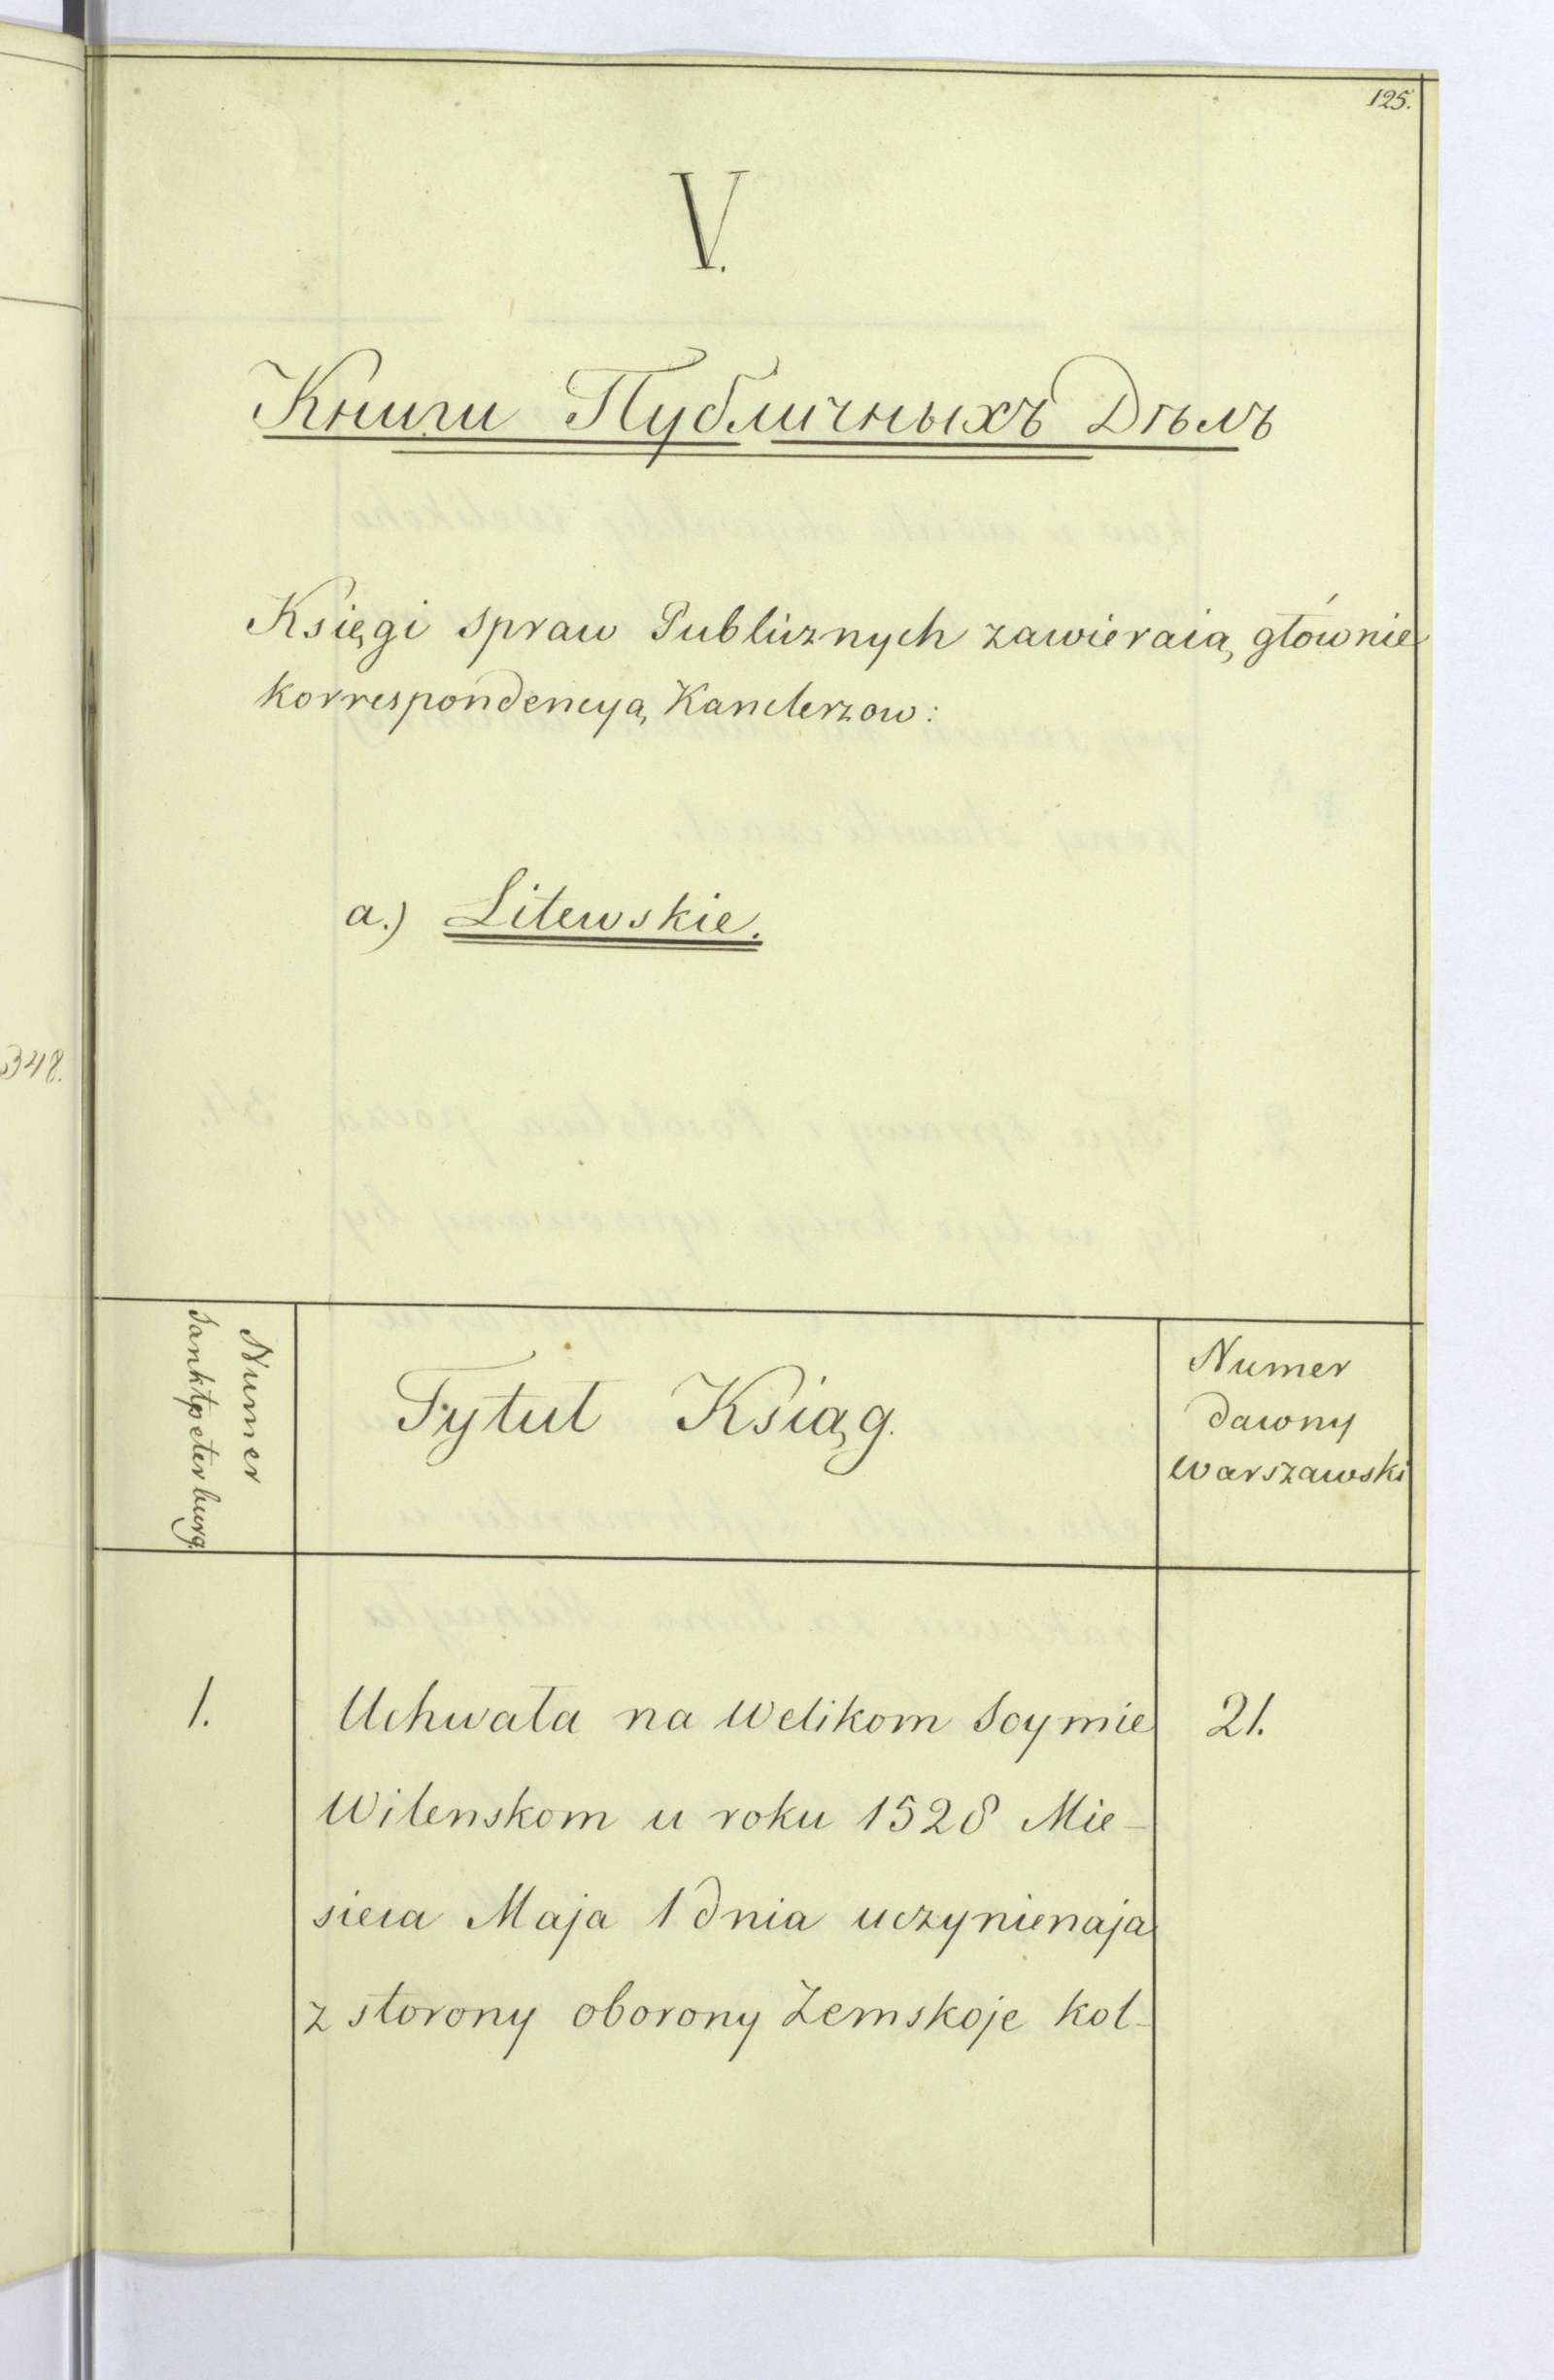 125.
V.
Книги Публичныхъ Дѣлъ
Księgi spraw Publicznych zawieraią głównie
korrespondencyą Kanclerzow:
a.) Litewskie.
348.
Numer
Sanktpeterburg.
Tytuł Ksiąg.
Numer
dawny
warszawski
1.
Uchwała na Welikom Soymie
21.
Wilenskom u roku 1528 Mie-
sieca Maja 1 dnia uczynienaja
z storony oborony Zemskoje kol-